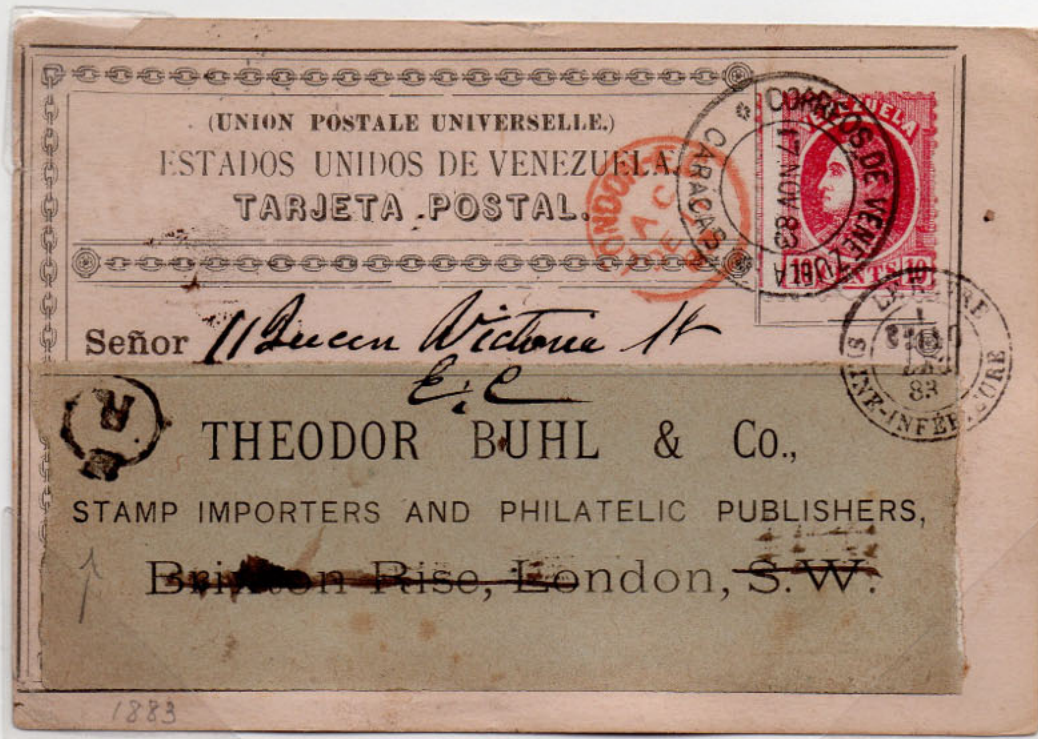 (UNION POSTALE UNIVERSELLE.)
ESTADOS UNIDOS DE VENEZUELA.
TARJETA POSTAL.
VENEZUELA
10 CENTS 10
CORREOS DE VENEZUELA
CARACAS
17 NOV 83
LONDON
AC
DE
LE HAVRE
83
SEINE-INFÉRIEURE
Señor 11 Queen Victoria St
E.C
R
THEODOR BUHL & Co.,
STAMP IMPORTERS AND PHILATELIC PUBLISHERS,
Brixton Rise, London, S.W.
1883